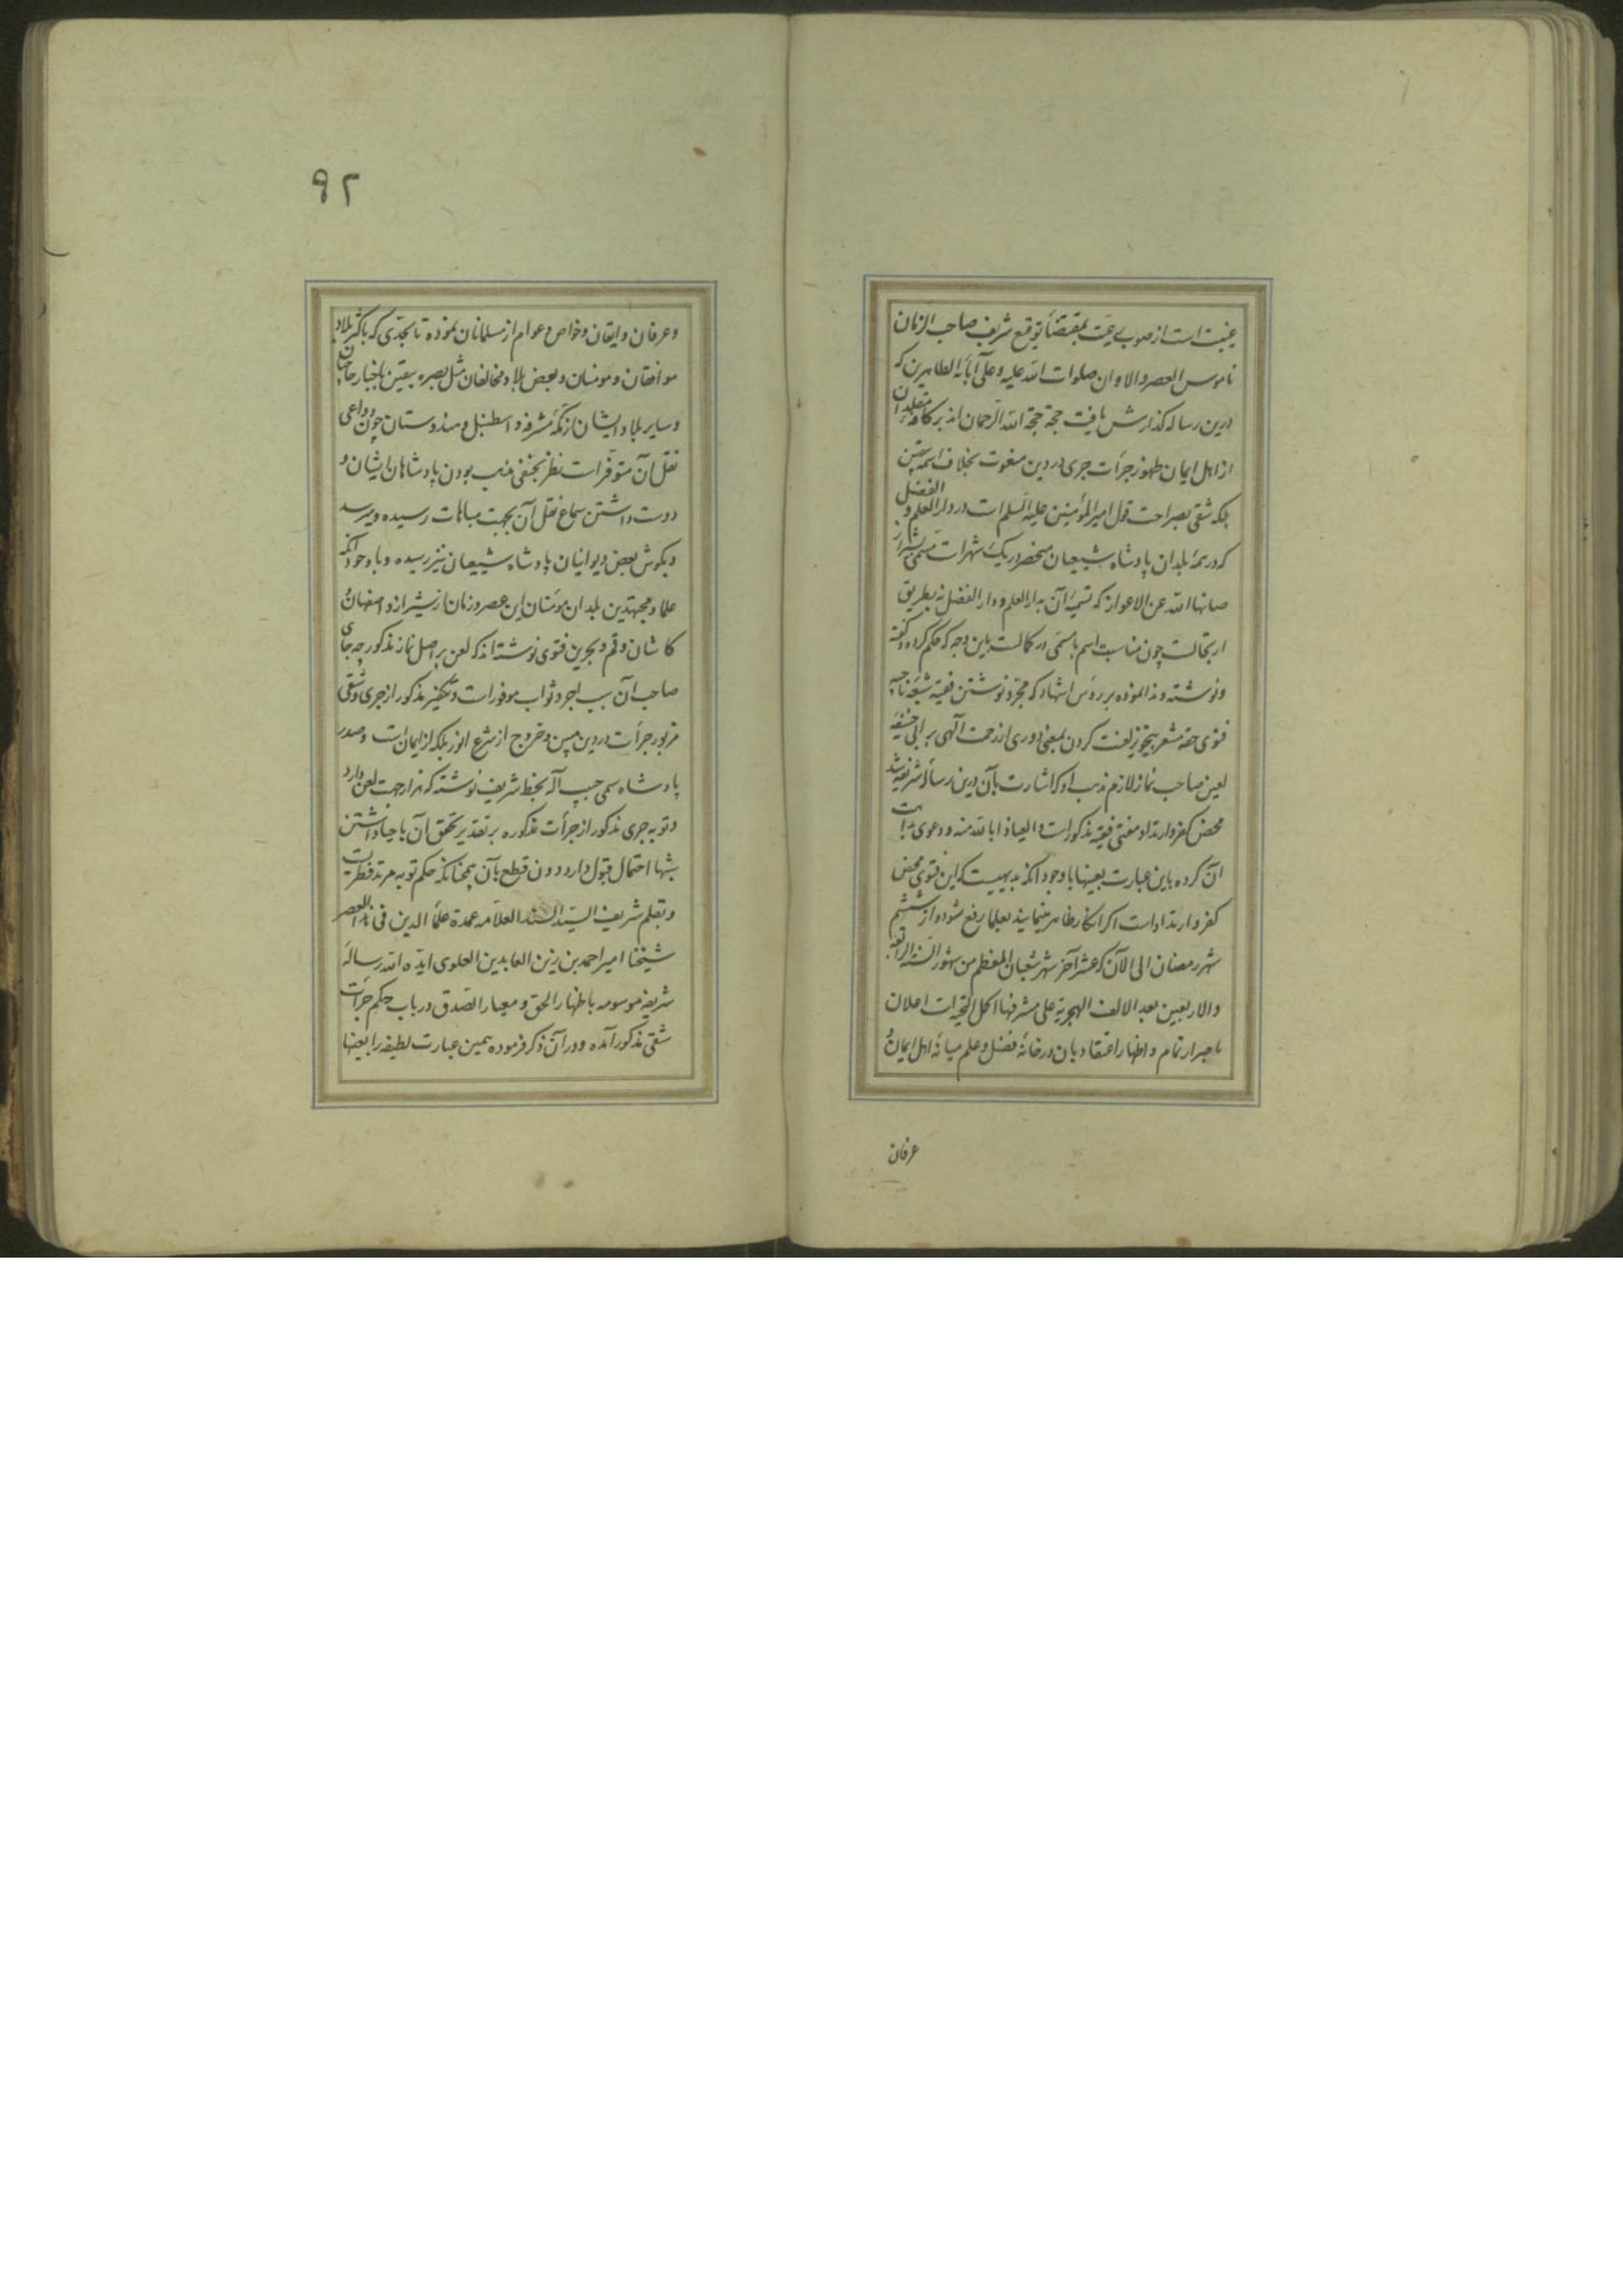 غیبت است از صوب رعیت بمقتضاء توقیع شریف صاحب الزمان
ناموس العصر والاوان صلوات الله علیه و علی آبائه الطاهرین که
درین رساله گذارش یافت حجة حجة الله الرحمان اند بر کافهٔ مقلدان
از اهل ایمان ظهور جرأت جری در دین بخلاف
بلکه شقی بصراحت قول امیرالمؤمنین علیه السلم است در دار العلم و الفضل
که در همهٔ بلدان پادشاه شیعیان منحصر در یک شهرات مسمی بشیراز
صانها الله عن الاعواز که تسمیهٔ آن به دار العلم و دار الفضل نه بطریق
ارتجالست چون مناسبت اسم با مسمی در کمالست باین وجه که حکم کرده و گفته
و نوشته و ندا نموده بر رؤس اشهاد که مجرد نوشتن فقیه شیعهٔ ناجیه
فتوی حقه مشعر بتجویز لعنت کردن بمعنی دوری از رحمت آلهی بر ابی حنیفه
لعین صاحب نماز لازم مذهب او که اشارت بآن درین رسالهٔ شریفه شد
محض کفر و ارتداد مفتی فقیه مذکور است و العیاذ بالله منه و دعوی
آن کرده باین عبارت بعینها با وجود آنکه بدیهیست که این فتوی محض
کفر و ارتداد است اگر انکار ظاهر مینمایند بعلما رفع شود و از ششم
شهر رمضان الی الآن که عشر آخر شهر شعبان المعظم من شهور السنة الرابعه
والاربعین بعد الالف الهجریة علی مشرفها اکمل التحیة است اعلان
باصرار تمام و اظهار اعتقاد بان در خانهٔ فضل و علم میانهٔ اهل ایمان و
عرفان
۹۲
و عرفان و ایقان و خواص و عوام از مسلمانان نموده تا بحدی که باکثر بلاد
موافقان و مومنان و بعض بلاد مخالفان مثل بصره بیقین باخبار حاجیان
و سایر بلاد ایشان از مکهٔ مشرفه و اسطنبل و هندوستان چون دواعی
نقل آن متوفر است نظر بحنفی مذهب بودن پادشاهان ایشان و
دوست داشتن سماع نقل آن بجهت مباهات رسیده و میرسد
و بگوش بعض دیوانیان پادشاه شیعیان نیز رسیده و با وجود آنکه
علما و مجتهدین بلدان مؤمنان این عصر و زمان از شیراز و اصفهان و
کاشان و قم و بحرین فتوی نوشته اند که لعن بر اصل نماز مذکور چه جای
صاحب آن سبب اجر و ثواب موفور است و تکفیر مذکور از جری و شقی
مزبور جرأت در دین مبین و خروج از شرع انور بلکه از ایمان است و صدر
پادشاه سمی حبیب آله بخط شریف نوشته که نماز جهت لعن دارد
و توبه جری مذکور از جرأت مذکوره بر تقدیر تحقق آن با حیا داشتن
شبها احتمال قبول دارد دون قطع بآن همچنانکه حکم توبه مرتد فطریست
و بقلم شریف السید السند العلامه عمدة علماء الدین فی هذا العصر
شیخنا امیر احمد بن زین العابدین العلوی ایده الله رسالهٔ
شریفه موسومه باظهار الحق و معیار الصدق در باب حکم جرأت
شقی مذکور آمده و در آن ذکر فرموده بهمین عبارت لطیفه را بعینها